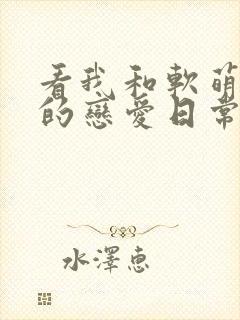 看我和軟萌
的戀愛日常
水澤惠